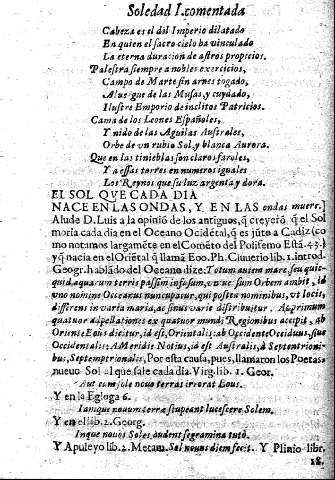 Soledad I. comentada
Cabeza es el dil Imperio dilatado
En quien el sacro cielo ha vinculado
La eterna duracion de astros propicios.
Palestra siempre a nobles exercicios,
Campo de Marte sin arnes togado,
Albergue de las Musas, y cuydado,
Ilustre Emporio de inclitos Patricios.
Cama de los Leones Españoles,
Y nido de las Aguilas Australes,
Orbe de vn rubio Sol, y blanca Aurora.
Que en las tinieblas son claros faroles,
Y a essas torres en numeros iguales
Los Reynos que su luz argenta y dora.
EL SOL QVE CADA DIA
NACE EN LAS ONDAS, Y EN LAS ondas muere.]
Alude D. Luis a la opinió de los antiguos, q̃ creyerõ q̃ el Sol
moria cada dia en el Oceano Ocidétal, q̃ es jũto a Cadiz (co
mo notamos largaméte en el Cométo del Polifemo Está. 43.)
y q̃ nacia en el Oriétal q̃ llamã Eoo. Ph. Cluuerio lib. 1. introd.
Geogr. hablãdo del Oceano dize: Totum autem mare, seu quic-
quid, aquarum terris passim infusum,
vno nomine Oceanus nuncupatur, qui positu nominibus, vt locis,
differens in varia maria, ac sinus varie distribuitur. Ac primum
quatuor appellationes ex quatuor mundi Regionibus accipit, ab
Oriente Eous dicitur, id est, Orientalis; ab Occidente Occiduus, siue
Occidentalis: A Meridie Notius, id est Australis, à Septentrioni-
bus, Septemptrionalis, Por esta causa, pues, llamaron los Poetas
nueuo Sol al que sale cada dia. Virg. lib. 1. Geor.
Aut cum sole nouo terras irrorat Eous.
Y en la Egloga 6.
Iamque nouum terræ stupeant lucescere Solem.
Y en el lib. 2. Georg.
Inque nouos Soles audent se gramina tutò.
Y Apuleyo lib. 2. Metam. Sol nouus diem fecit. Y Plinio libr.
18.